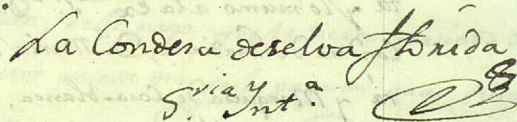 La Condesa deselva florida
S.ria y Int.a